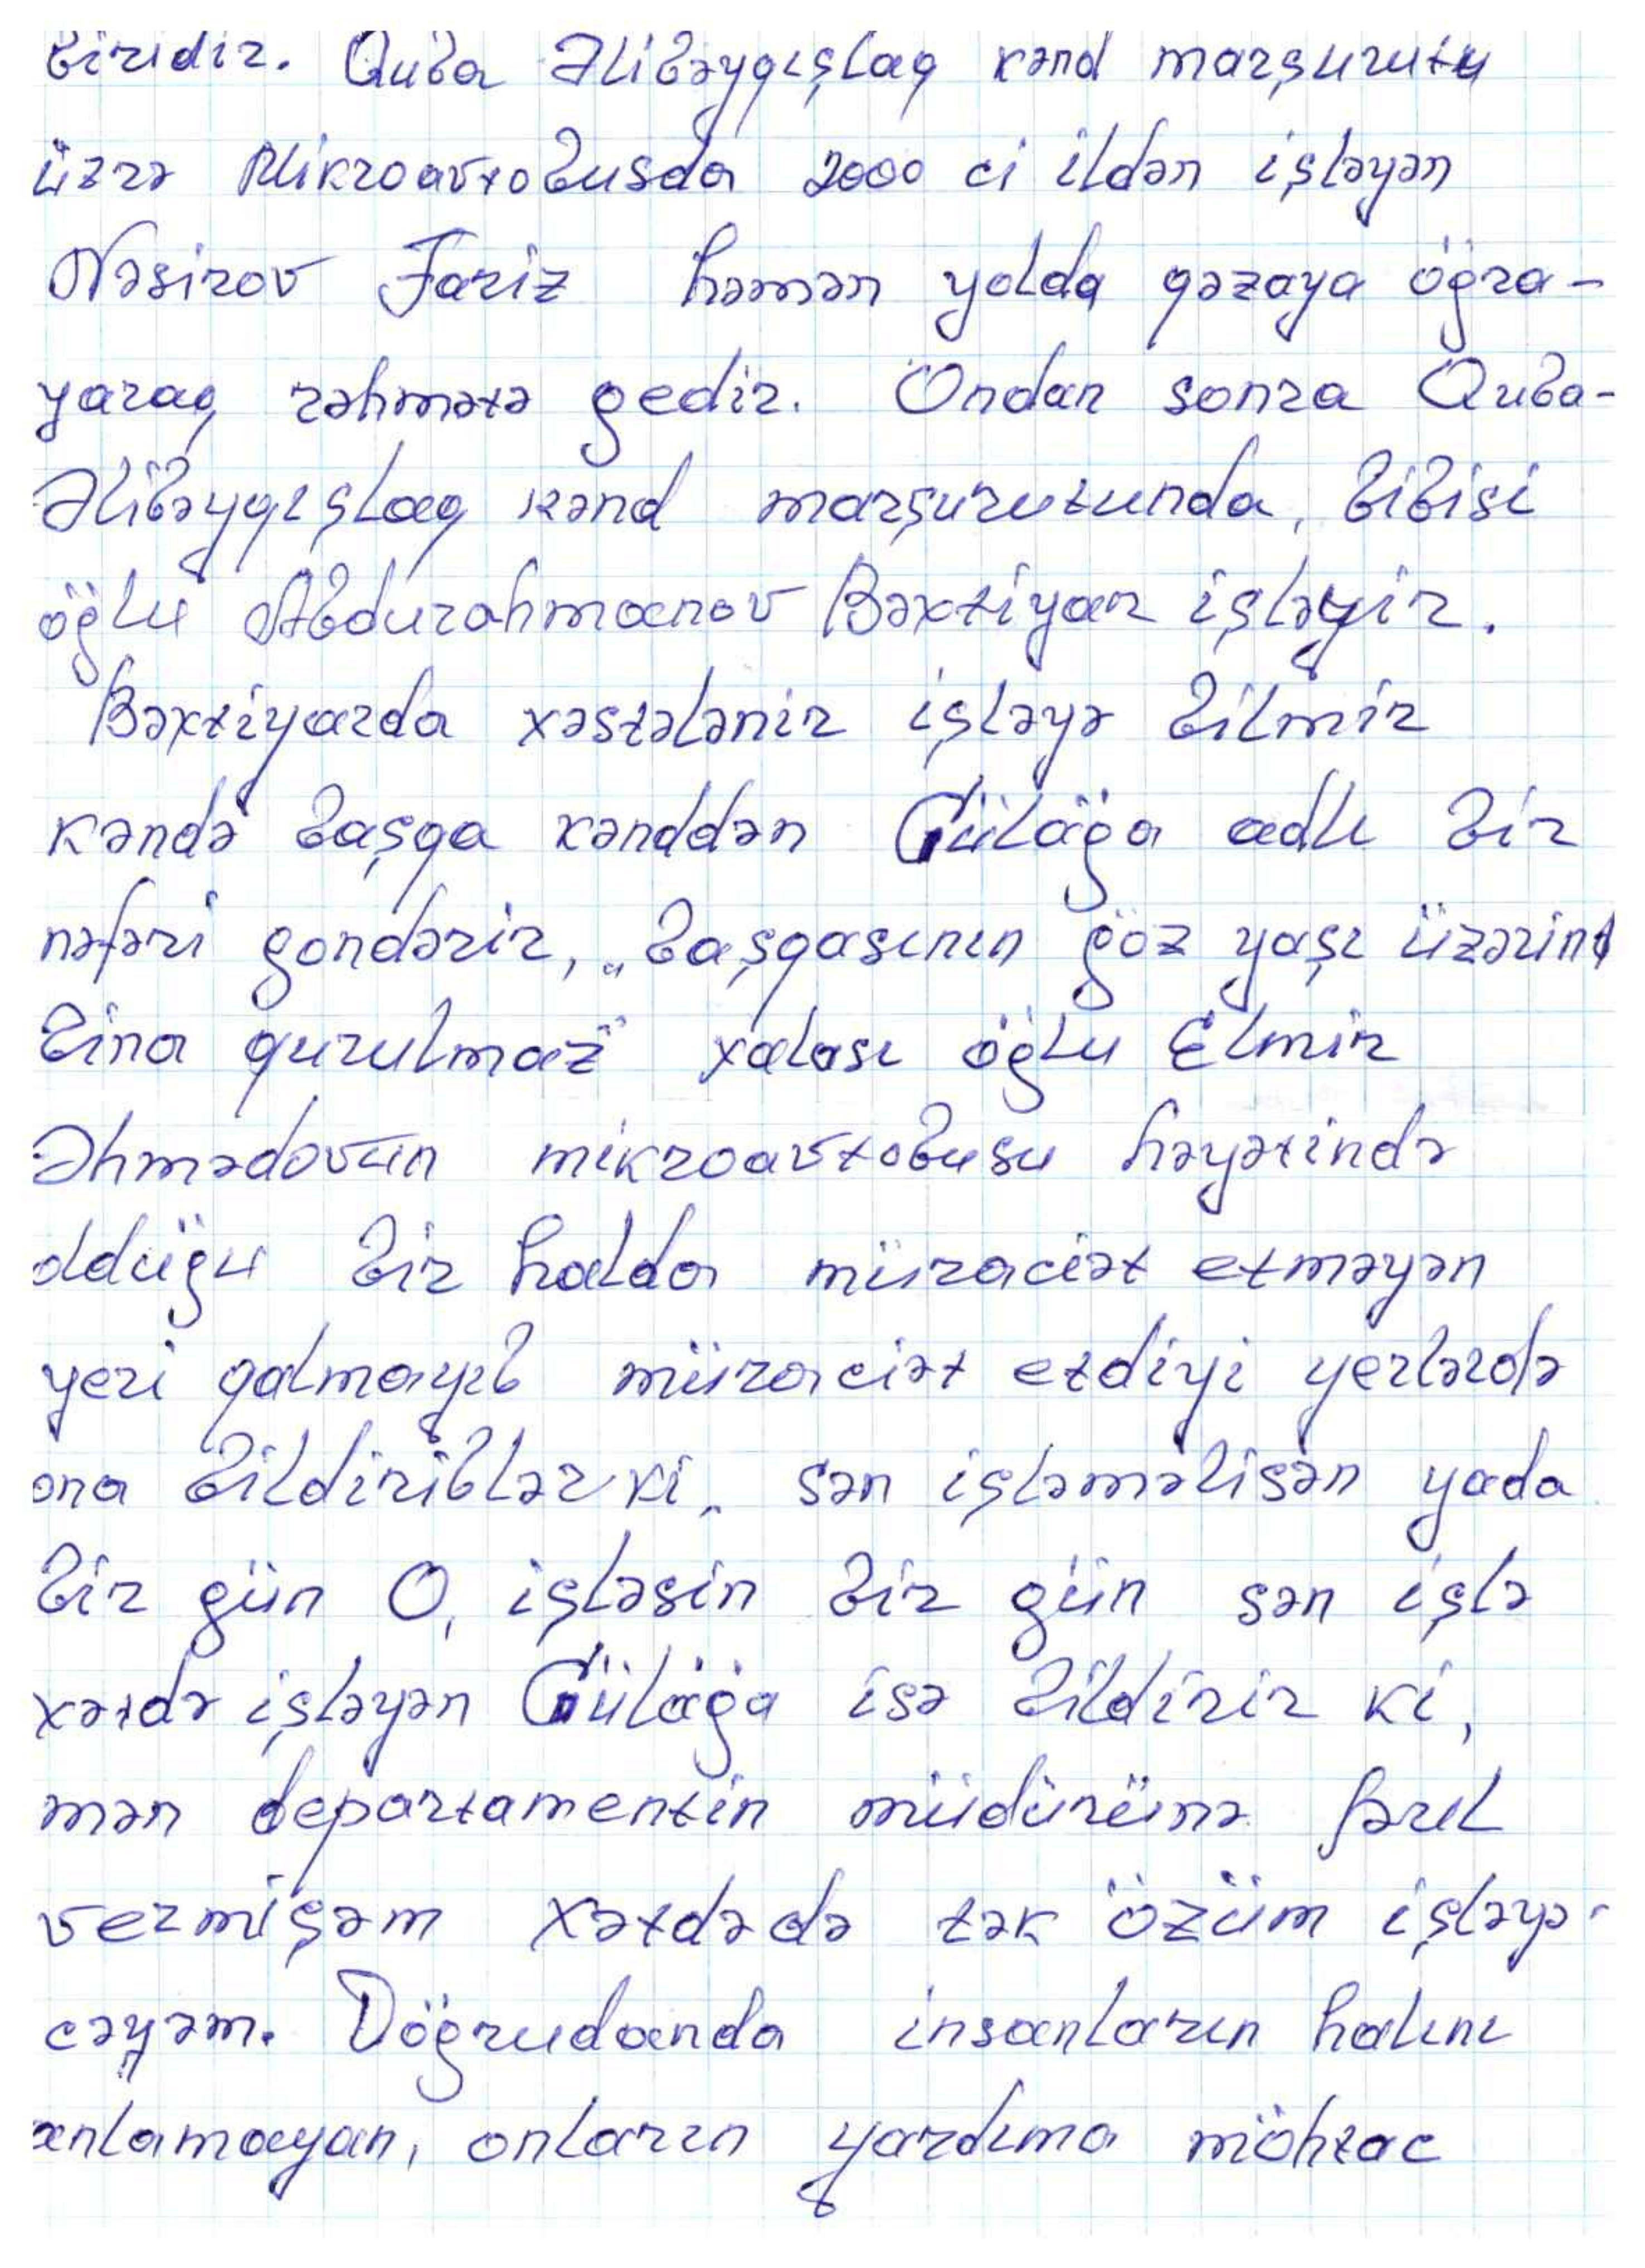 biridir. Quba Əlibəyqışlaq kənd marşurutu
üzrə Mikroavtobusda 2000 ci ildən işləyən
Nəsirov Fariz həmən yolda qəzaya öğra-
yaraq rəhmətə gedir. Ondan sonra Quba-
Əlibəyqışlaq kənd marşurutunda, bibisi
öğlu Abdurahmanov Bəxtiyar işləyir.
Bəxtiyarda xəstələnir işləyə bilmir
kəndə başqa kənddən Gülağa adlı bir
nəfəri gondərir, „başqasının göz yaşı üzərind
bina qurulmaz" xalası öğlu Elmir
Əhmədovun mikroavtobusu həyətində
olduğu bir halda müraciət etməyən
yeri qalmayıb müraciət etdiyi yerlərdə
ona bildiriblər ki„ sən işləməlisən yada
bir gün O, işləsin bir gün sən işlə
xətdə işləyən Gülağa isə bildirir ki,
mən departamentin müdürünə pul
vermişəm xətdədə tək özüm işləyə-
cəyəm. Döğrudanda insanların halını
anlamayan, onların yardıma möhtac